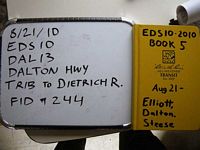 8/21/10
EDS10
DAL13
DALTON HWY
TRIB TO DIETRICH R.
FID # 244
EDS10-2010
BOOK 5
TRANSIT
Aug 21-
Elliott,
Dalton,
Steese